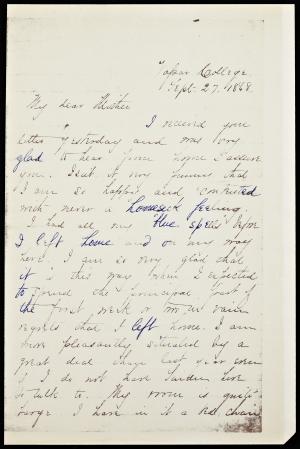 Vassar College
Sept. 27, 1868.
My dear Mother
I received your
letter yesterday and was very
glad to hear from home I assure
you. Isn't it very funny that
I am so happy and contented
with never a homesick feeling
I had all my blue spells before
I left home and on my way
here. I am so very glad that
it is this way when I expected
to spend the principal part of
the first week or two in vain
regrets that I left home. I am
more pleasantly situated by a
great deal than last year even
if I do not have here
to talk to. My room is quite
large I have in it a red chair